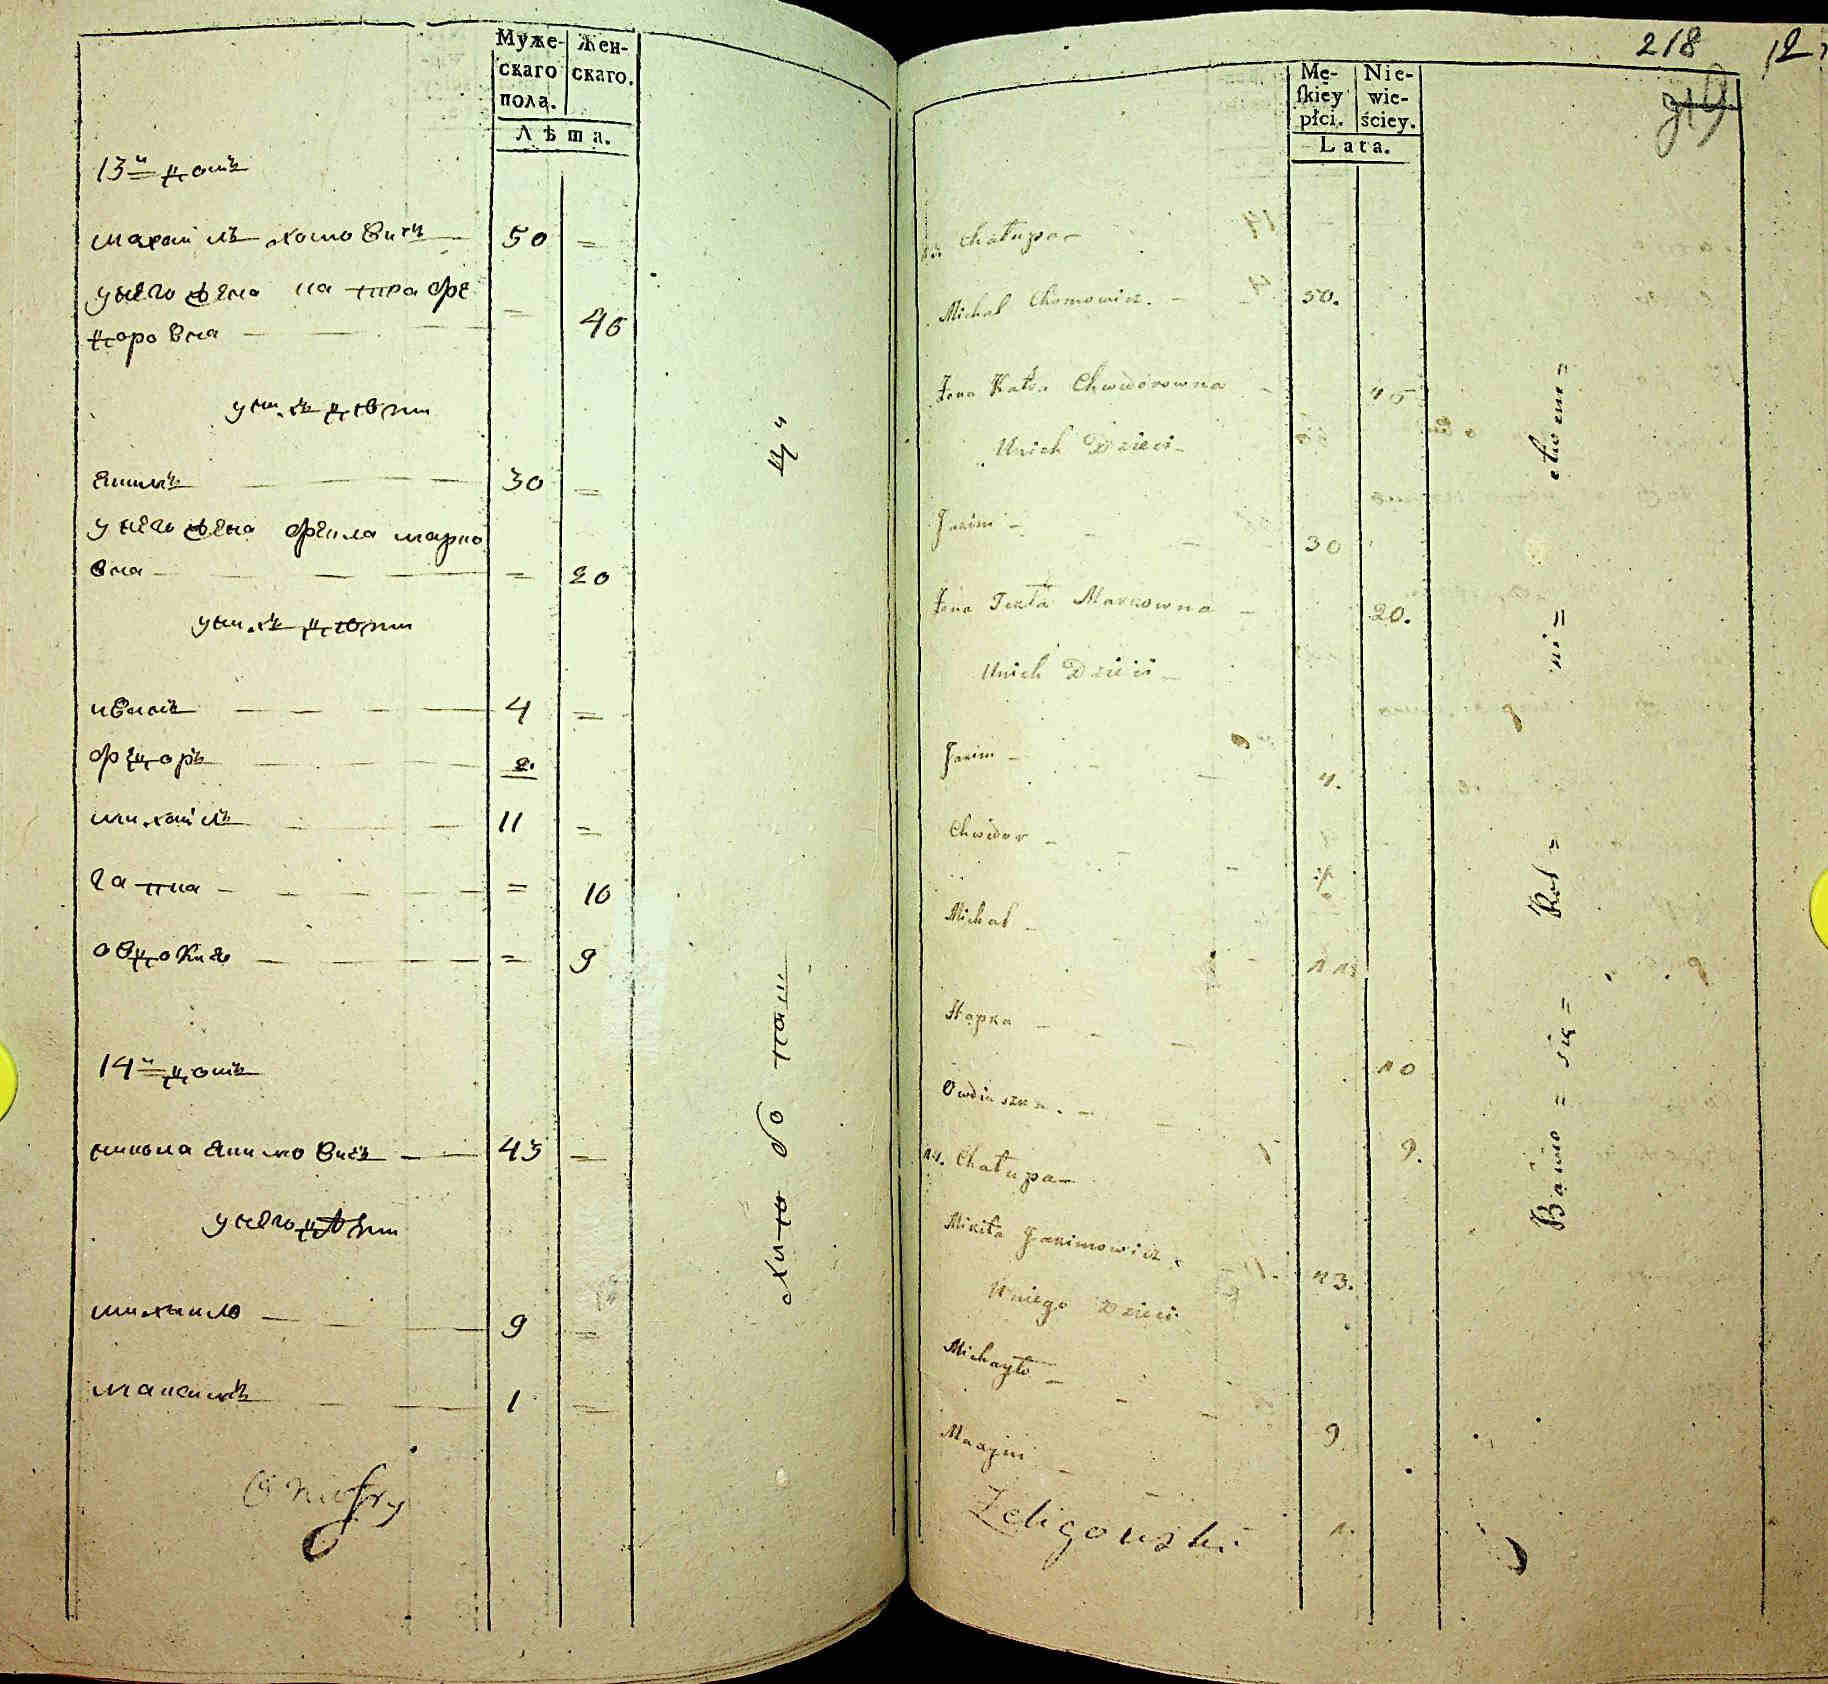 Муже-
скаго
пола.
Жен-
скаго.
Лѣта.
13й домъ
михаилъ хомовичъ 50 =
у него жена катра фе
доровна = 45
у них дѣти
Якимъ 30 =
у него жена фекла марко
вна = 20
у них дѣти
Якимъ 4 =
федоръ 2.
михаилъ 11 =
гапка = 10
овдокия = 9
14й домъ
микита Якимовичъ 43 =
у него дѣти
михаило 9 =
максимъ 1 =
Onufry
218
Mę-
ſkiey
płci.
Nie-
wie-
ściey.
Lata.
13. Chałupa
Michał Chomowicz. 50.
Żona Katra Chwedorowna 45
Unich Dzieci
Jakim 30
Żona Tekla Markowna 20.
Unich Dzieci
Jakim 4.
Chwedor
Michał 11
Hapka 10
9.
14. Chałupa
Mikita Jakimowicz 43.
Uniego Dzieci
Michayło 9
1.
Zeligowski